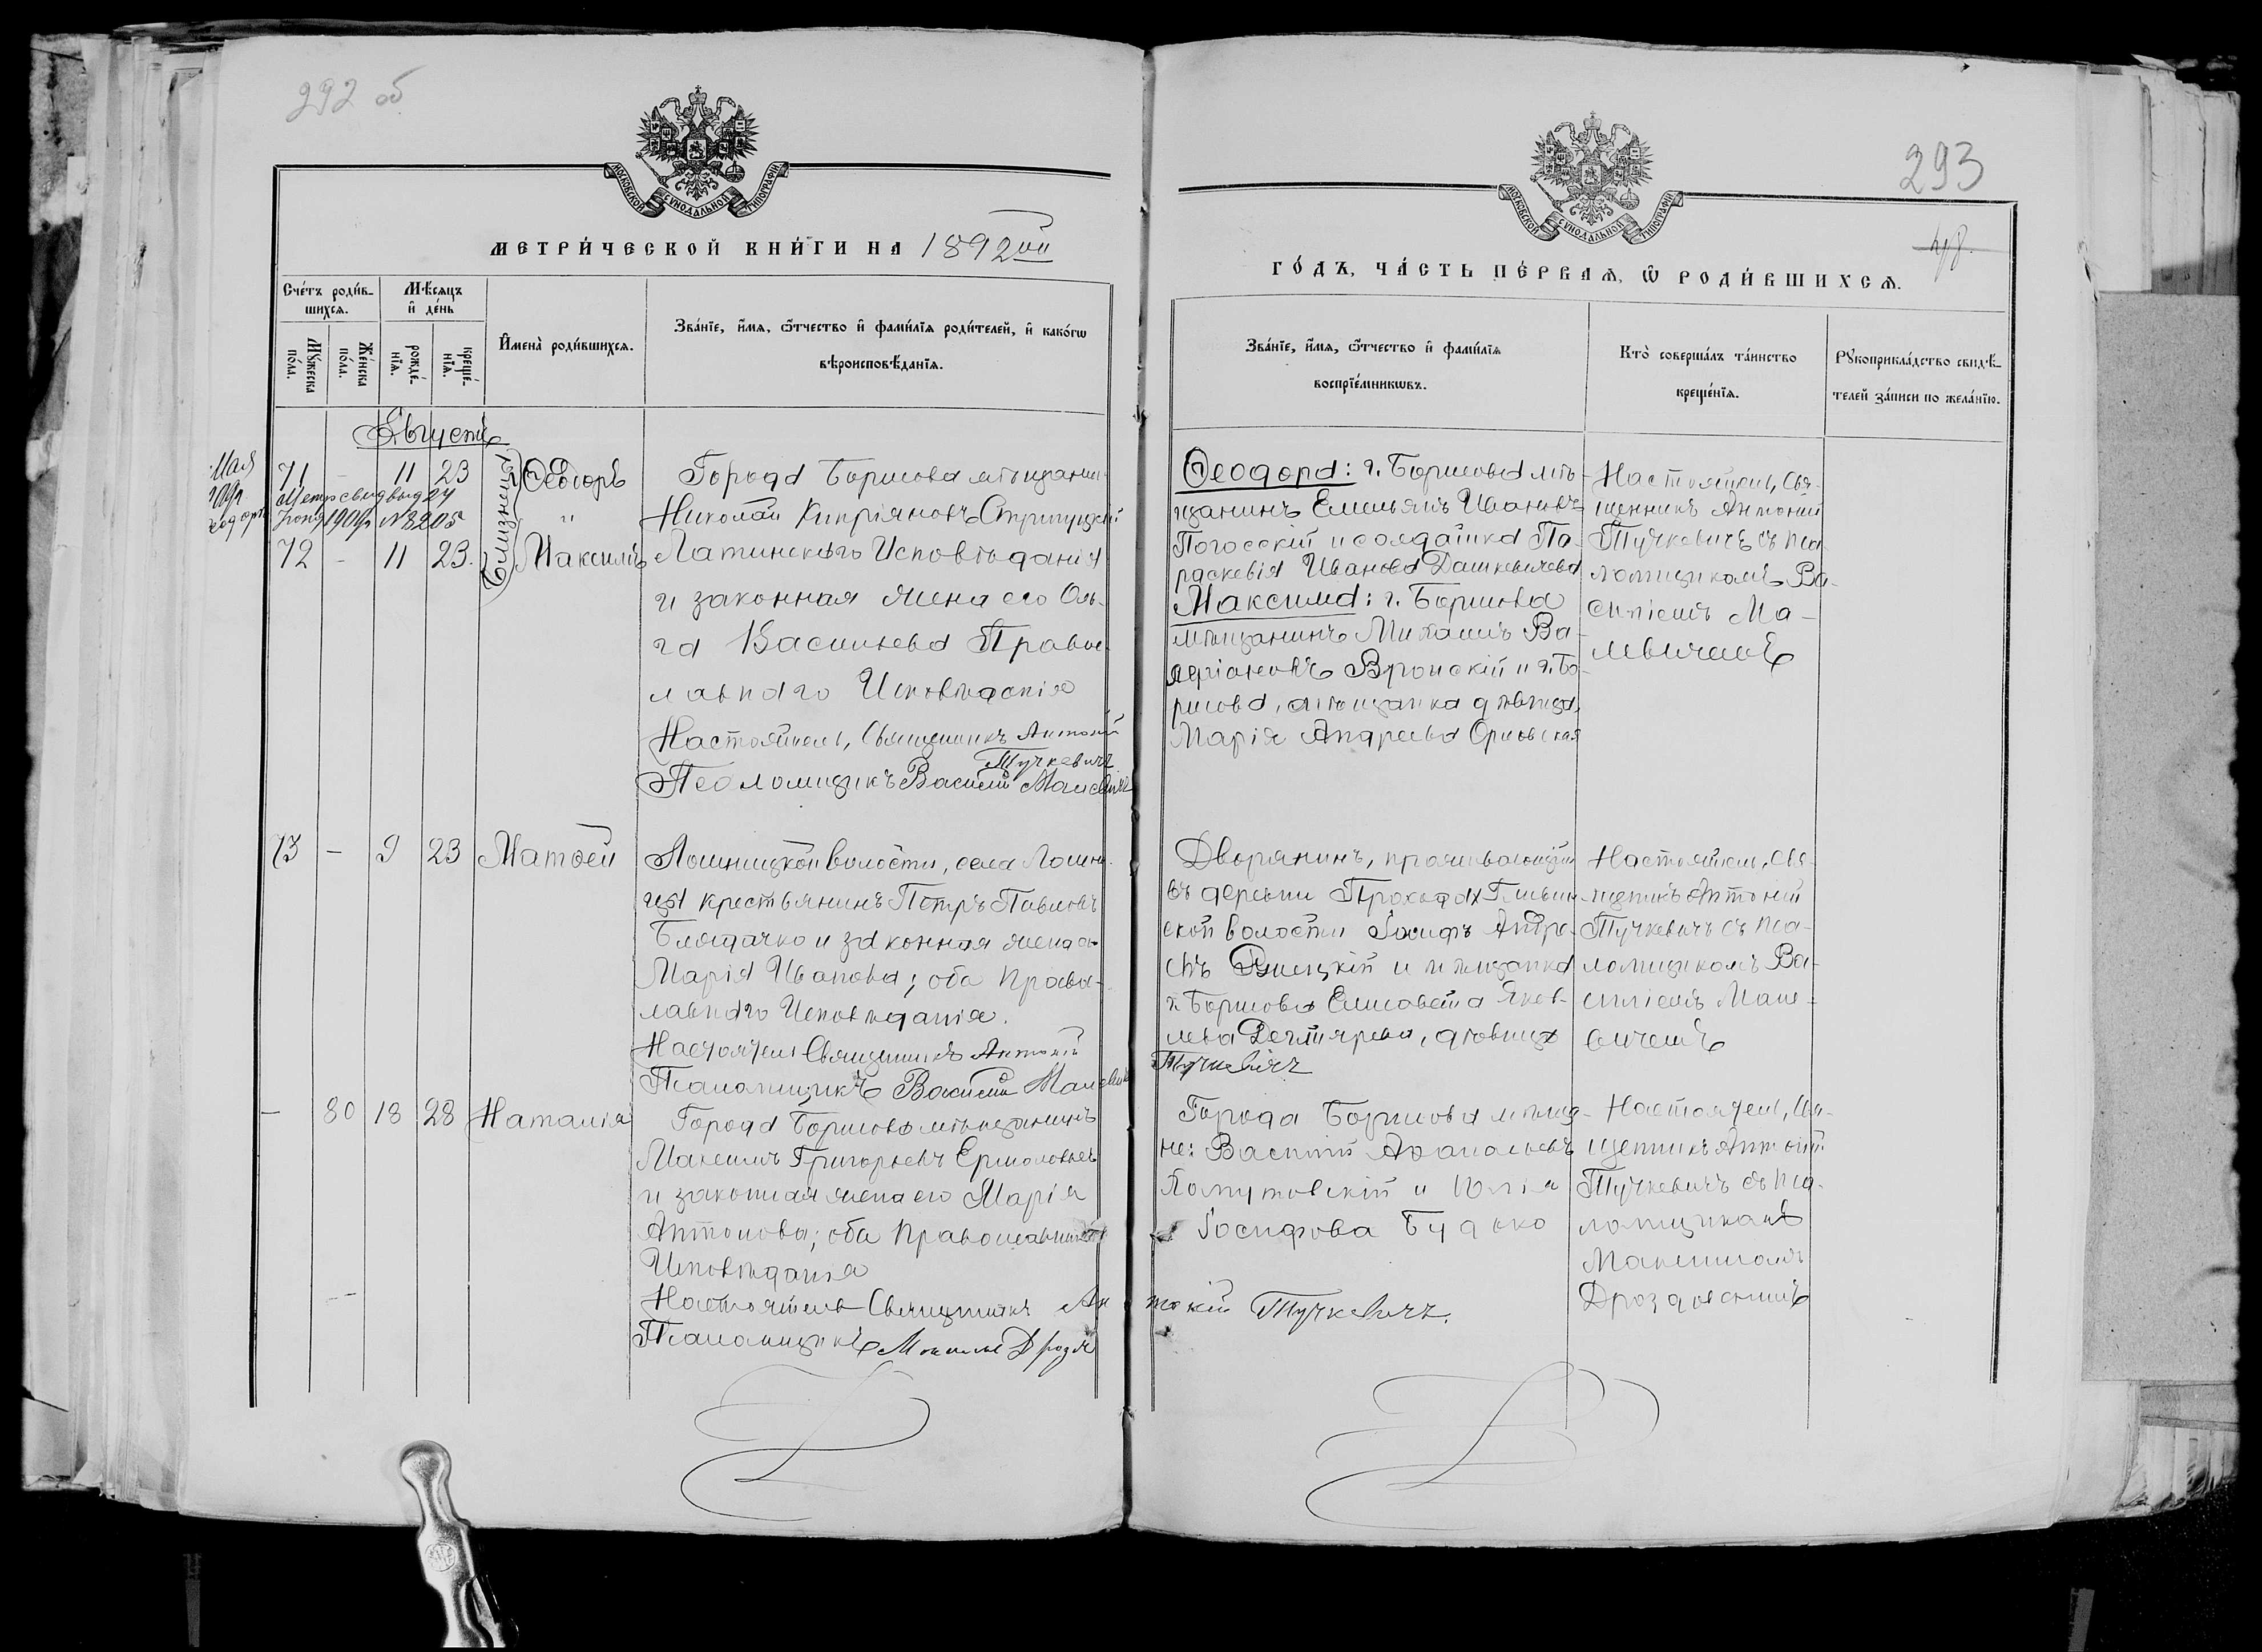 292 об.
МОСКОВСКОЙ СУНОДАЛЬНОЙ ТИПОГРАФІИ
МЕТРИ́ЧЕСКОЙ КНИ́ГИ НА 1892ой
Сче́тъ роди́вшихсѧ.
Мѣ́сѧцъ и҆ де́нь
Мꙋ́жеска по́ла.
Же́нска по́ла.
рожде́нїѧ.
креще́нїѧ.
И҆мена̀ роди́вшихсѧ.
Зва́нїе, и҆́мѧ, ѻ҆́тчество и҆ фами́лїѧ роди́телей, и҆ како́гѡ
вѣроисповѣ́данїѧ.
Августъ
71 - 11 23 Ѳеодоръ
Метр. свид. выд. 24
Іюня 1909г. №8205
близнецы
72 - 11 23. Максимъ
Города Борисова мѣщанин
Николай Кипріяновъ
Латинскаго Исповѣданія
и законная жена его Оль-
га Васильева Правос-
лавнаго Исповѣданія
Настоятель, Священникъ Антоній
Тучкевичъ
Псаломщикъ Василій Малевичъ
73 - 9 23 Матѳей
Лошницкой волости, села Лошни-
цы крестьянинъ Петръ Павловъ
и законная жена его
Марія Иванова; оба Правос-
лавнаго Исповѣданія.
Настоятель Священникъ Антоній
Псаломщикъ Василій Малевичъ
- 80 18 28 Наталія
Города Борисова мѣщанинъ
Максимъ Григорьевъ Ермоловичъ
и законная жена его Марія
Антонова; оба Православнаго
Исповѣданія
Настоятель Священникъ Ан
Псаломщикъ Максимъ Дрозд
293
МОСКОВСКОЙ СУНОДАЛЬНОЙ ТИПОГРАФІИ
ГО́ДЪ, ЧА́СТЬ ПЕ́РВАѦ, Ѡ҆ РОДИ́ВШИХСѦ.
Зва́нїе, и҆́мѧ, ѻ҆́тчество и҆ фами́лїѧ
воспрїе́мникѡвъ.
Кто̀ соверша́лъ та́инство
креще́нїѧ.
Рꙋкоприкла́дство свидѣ́-
телей за́писи по жела́нїю.
Ѳеодора: г. Борисова мѣ-
щанинъ Емельянъ Ивановъ
Погосскій и солдатка Па-
раскевія Иванова Дашкевичева
Максима: г. Борисова
мѣщанинъ Михаилъ Ва-
леріановъ Вронскій и г. Бо-
рисова, мѣщанка дѣвица,
Марія Андреева Орловская
Настоятель, Свя-
щенникъ Антоній
Тучкевичъ съ Пса-
ломщикомъ Ва-
силіемъ Ма-
левичемъ
Дворянинъ, проживающій
въ деревни Проходы
ской волости Іосифъ Андре-
евъ и мѣщанка
г. Борисова Елисавета Яков-
лева Дегтярева, дѣвица
Тучкевичъ
Настоятель, Свя-
щенникъ Антоній
Тучкевичъ съ Пса-
ломщикомъ Ва-
силіемъ Мале-
вичемъ
Города Борисова мѣща-
не: Василій Аѳанасьевъ
и Юлія
Іосифова Будько
тоній Тучкевичъ.
Настоятель, Свя-
щенникъ Антоній
Тучкевичъ съ Пса-
ломщикомъ
Максимомъ
Дроздовскимъ